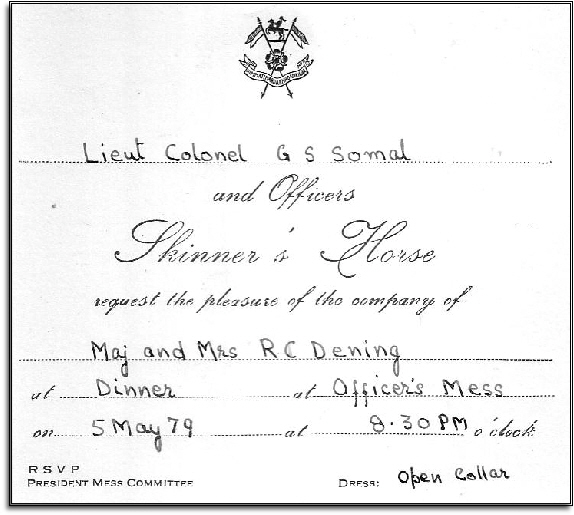 Lieut Colonel G S Somal
and Officers
Skinner's Horse
request the pleasure of the company of
Maj and Mrs R C Dening
at Dinner at Officer's Mess
on 5 May 79 at 8.30 PM o'clock
R S V P
PRESIDENT MESS COMMITTEE DRESS: Open Collar